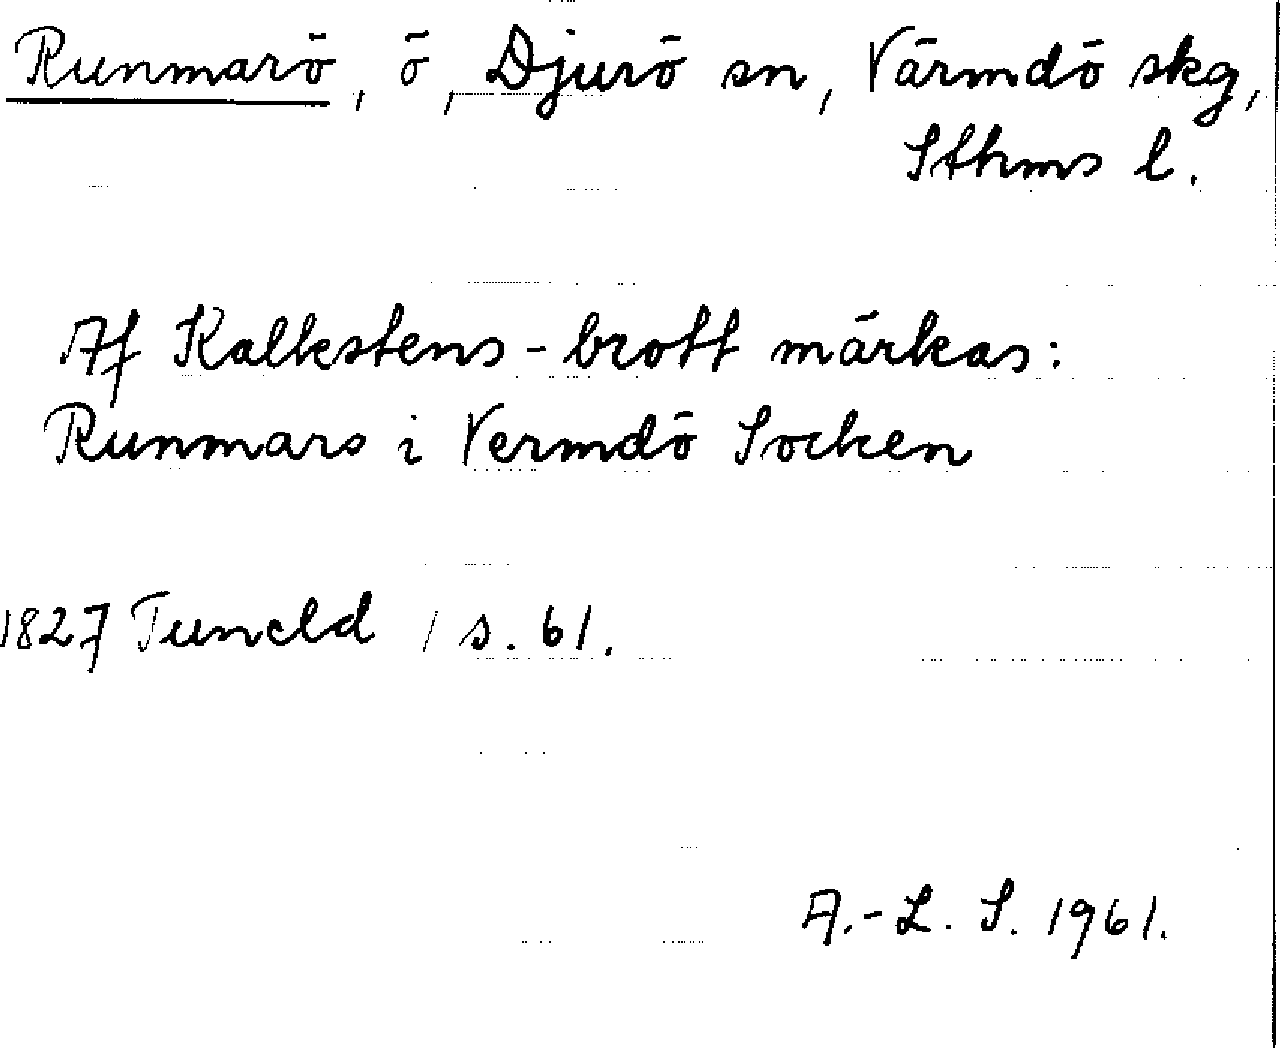 Runmarö, ö, Djurö sn, Värmdö skg,
Sthms l.
Af Kalkstens-brott märkas:
Runmars i Vermdö Socken
1827 Tuneld 1 s. 61.
A.-L. S. 1961.